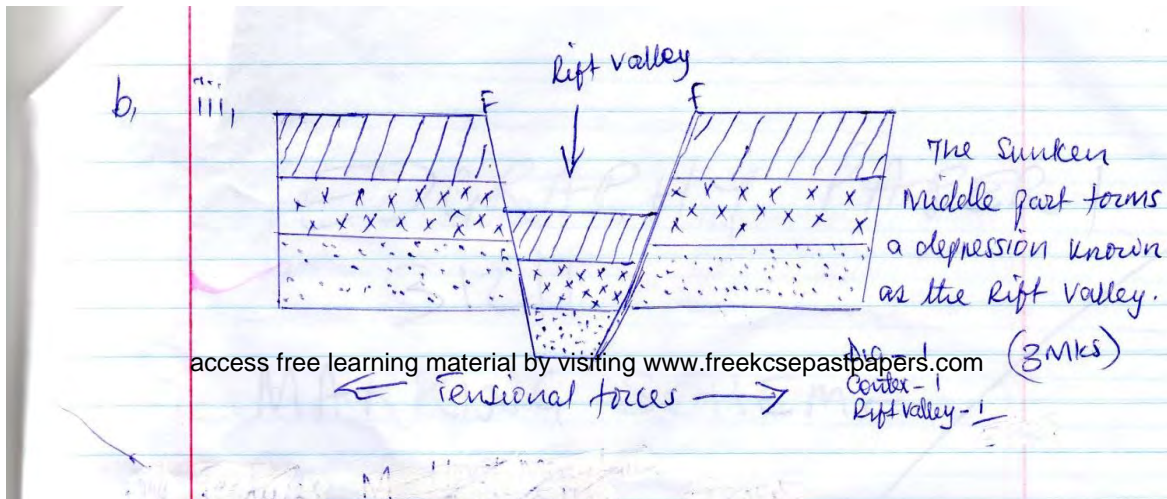 Rift valley
b, iii,
F F
The Sunken
Middle part forms
a depression known
as the Rift Valley.
(3Mks)
access free learning material by visiting www.freekcsepastpapers.com
- 1
← Tensional forces →
- 1
Rift valley - 1